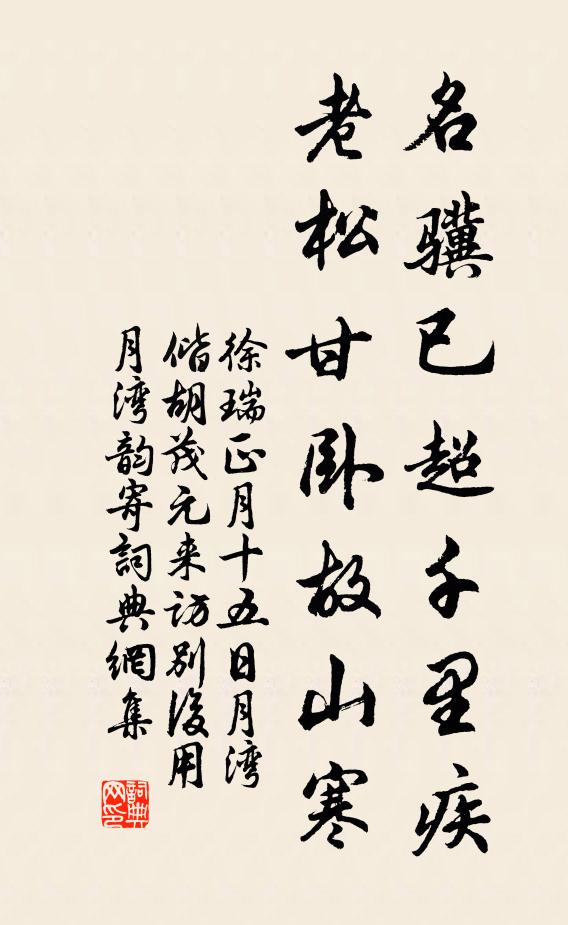 名骥已超千里疾
老松甘卧故山寒
徐瑞正月十五日月湾
偕胡茂元来訪别後用
月湾韵寄詞典網集
詞典网印